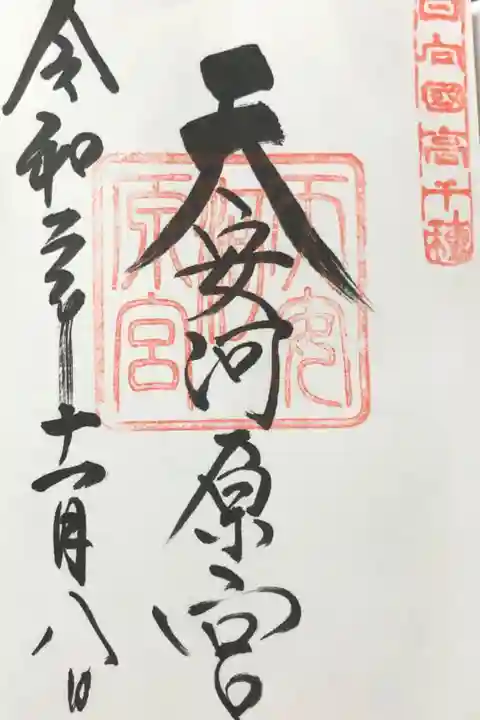 日向國高千穂
天安河原宮
天安河原宮
令和二年十一月八日